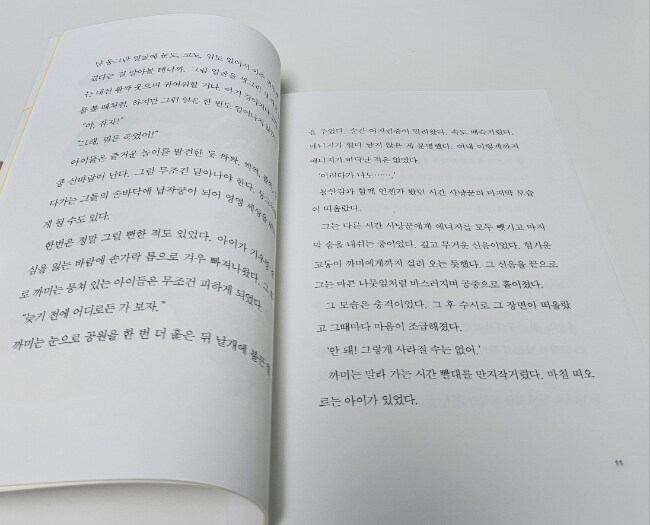 난 동그란 얼굴에 눈도, 코도, 입도 있어서
같다는 걸 알아볼 테니까. 그럼 얼굴을 찡그릴
는 대신 활짝 웃으며 귀여워할 거다. 아기 강아지
를 볼 때처럼. 하지만 그런 일은 한 번도 일어나지
"야, 잡자!"
"그래, 뭐든 죽었어!"
아이들은 즐거운 놀이를 발견한 듯 하하,
쿵 신바람이 난다. 그럼 무조건 달아나야 한다.
다가는 그들의 손바닥에 납작궁이 되어 영영 세상을
게 될 수도 있다.
한번은 정말 그럴 뻔한 적도 있었다. 아이가 기우뚱
심을 잃는 바람에 손가락 틈으로 겨우 빠져나왔다. 그
로 까미는 뭉쳐 있는 아이들은 무조건 피하게 되었다.
"늦기 전에 어디로든 가 보자."
까미는 눈으로 공원을 한 번 더 훑은 뒤 날개에 불끈
을 주었다. 순간 어지럼증이 밀려왔다. 속도 메슥거렸다.
에너지가 얼마 남지 않은 게 분명했다. 여태 이렇게까지
에너지가 바닥난 적은 없었다.
'이러다가 나도……,'
불안감과 함께 언젠가 봤던 시간 사냥꾼의 마지막 모습
이 떠올랐다.
그는 다른 시간 사냥꾼에게 에너지를 모두 뺏기고 마지
막 숨을 내쉬는 중이었다. 길고 무거운 신음이었다. 힘겨운
고통이 까미에게까지 실려 오는 듯했다. 그 신음을 끝으로
그는 마른 나뭇잎처럼 바스러지며 공중으로 흩어졌다.
그 모습은 충격이었다. 그 후 수시로 그 장면이 떠올랐
고 그때마다 마음이 조급해졌다.
'안 돼! 그렇게 사라질 수는 없어.'
까미는 말라 가는 시간 빨대를 만지작거렸다. 마침 떠오
르는 아이가 있었다.
11